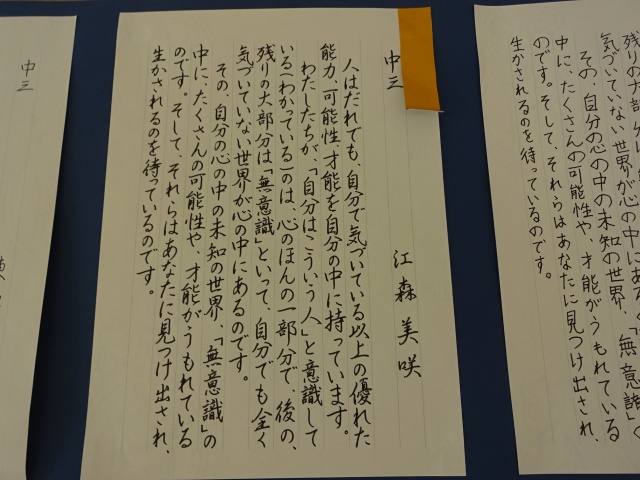 中三
江森美咲
人はだれでも、自分で気づいている以上の優れた
能力、可能性、才能を自分の中に持っています。
わたしたちが、「自分はこういう人」と意識して
いる(わかっている)のは、心のほんの一部分で、後の、
残りの大部分は「無意識」といって、自分でも全く
気づいていない世界が心の中にあるのです。
その、自分の心の中の未知の世界、「無意識」の
中に、たくさんの可能性や、才能がうもれている
のです。そして、それらはあなたに見つけ出され、
生かされるのを待っているのです。
気づいていない世界が心の中にある
その、自分の心の中の未知の世界、「無意識」
中に、たくさんの可能性や、才能がうもれている
のです。そして、それらはあなたに見つけ出され、
生かされるのを待っているのです。
中三